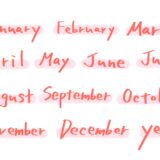 nuary February Mar
ril May June Ju
gust September Octo
vember December ye